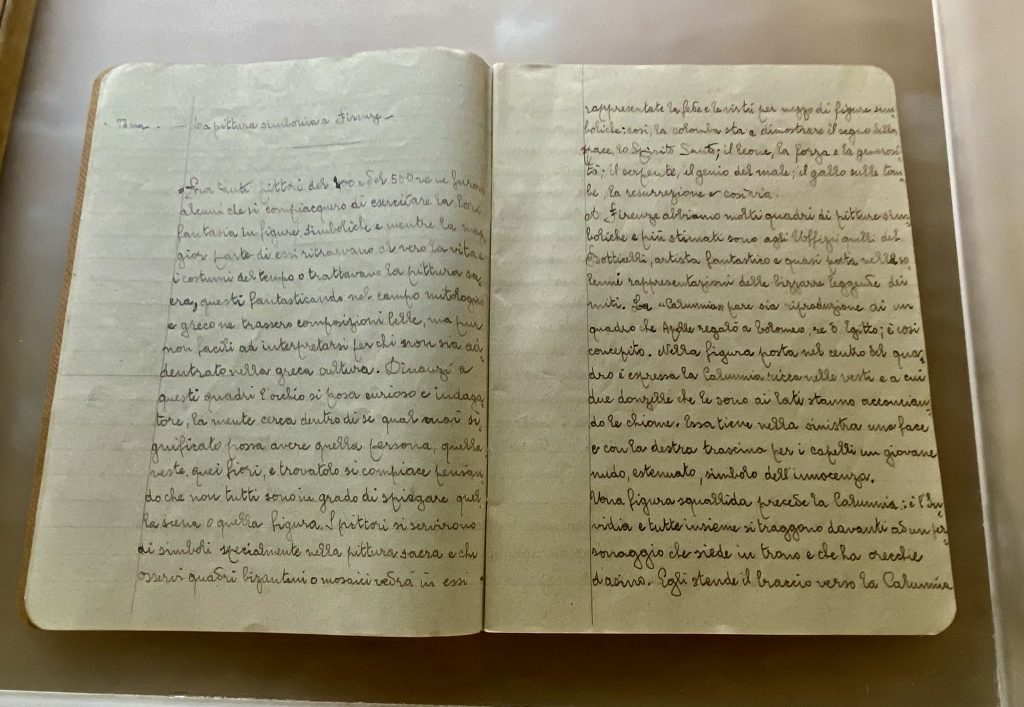 Tema. — La pittura simbolica a Firenze —
Fra tanti pittori del 400 e del 500 ve ne furono
alcuni che si compiacquero di esercitare la loro
fantasia in figure simboliche e mentre la mag-
gior parte di essi ritraevano al vero la vita e
i costumi del tempo o trattavano la pittura sa-
cra, questi fantasticando nel campo mitologico
e greco ne trassero composizioni belle, ma pur
non facili ad interpretarsi per chi non sia ad-
dentrato nella greca cultura. Dinanzi a
questi quadri l'occhio si posa curioso e indaga-
tore, la mente cerca dentro di se qual mai si-
gnificato possa avere quella persona, quella
veste, quei fiori, e trovatolo si compiace pensan-
do che non tutti sono in grado di spiegare quel-
la scena o quella figura. I pittori si servirono
di simboli specialmente nella pittura sacra e chi
osservi quadri bizantini o mosaici vedrà in essi
rappresentate la fede e le virtù per mezzo di figure sim-
boliche: così, la colomba sta a dimostrare il segno della
pace, lo Spirito Santo; il leone, la forza e la generosi-
tà; il serpente, il genio del male; il gallo sulle tom-
be, la resurrezione e così via.
A Firenze abbiamo molti quadri di pitture sim-
boliche e più stimati sono agli Uffizi quelli del
Botticelli, artista fantastico e quasi poeta nelle so-
lenni rappresentazioni delle bizzarre leggende dei
miti. La "Calunnia" pare sia riproduzione di un
quadro che Apelle regalò a Tolomeo, re d'Egitto; è così
concepito. Nella figura posta nel centro del qua-
dro è espressa la Calunnia ricca nelle vesti e a cui
due donzelle che le sono ai lati stanno acconcian-
do le chiome. Essa tiene nella sinistra una face
e con la destra trascina per i capelli un giovane
nudo, estenuato, simbolo dell'innocenza.
Una figura squallida precede la Calunnia: è l'In-
vidia e tutte insieme si traggono davanti ad un per-
sonaggio che siede in trono e che ha orecchie
d'asino. Egli stende il braccio verso la Calunnia